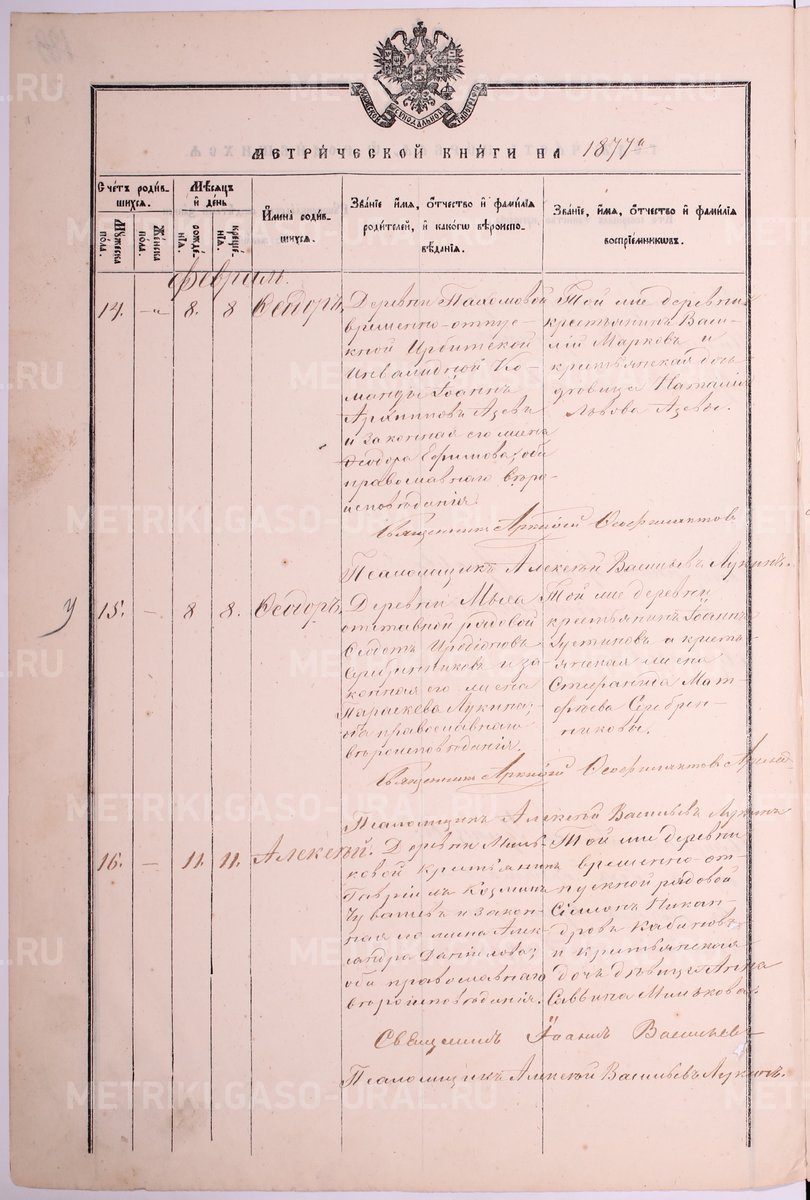 МОСКОВСКОЙ СѴНОДАЛЬНОЙ ТИПОГРАФ
МЕТРИ́ЧЕСКОЙ КНИ́ГИ НА 1877 г
Счетъ родив-
шихся.
Мужеска пола.
Женска пола.
Мѣсяцъ
и день
рожде́нїя.
креще́нїя.
Имена родив-
шихся.
Званїе имя, отчество и фамилїя
родителей, и какогѡ вѣроиспо-
вѣданїя.
Званїе, имя, отчество и фамилїя
воспрїемникѡвъ.
Февраль.
14. — " — 8. 8 Ѳеодоръ.
Деревни Пахомовой
временно-отпус-
кной Ирбитской
Инвалидной Ко-
манды Іоаннъ
Архиповъ Азевъ
и законная его жена
Ѳеодора Ефимова, оба
православнаго вѣро-
исповѣданія.
Той же деревни
крестьянинъ Васи-
лій Марковъ и
крестьянская дочь
дѣвица Наталія
Львова Азевы.
Священникъ Аркадій Ѳеофилактовъ
Псаломщикъ Алексѣй Васильевъ Лукинъ.
у 15. — 8 8. Ѳеодоръ.
Деревни Мыса
отставной рядовой
Ѳедотъ Иродіоновъ
Серебрянниковъ и за-
конная его жена
Параскева Лукина,
оба православнаго
вѣроисповѣданія.
Той же деревни
крестьянинъ Іоаннъ
Іустиновъ а кресть-
янская жена
Стефанида Мат-
фѣева Серебрен-
никовы.
Священникъ Аркадій Ѳеофилактовъ
Псаломщикъ Алексѣй Васильевъ Лукинъ
16. — 11. 11. Алексѣй.
Деревни Миль-
ковой крестьянинъ
Гавріилъ Козминъ
Чувашевъ и закон-
ная его жена Алек-
сандра Даніилова,
оба православнаго
вѣроисповѣданія.
Той же деревни
временно-от-
пускной рядовой
Сѷмеонъ Никан-
дровъ Кабановъ
и крестьянская
дочь дѣвица Анна
Саввина Милькова.
Священникъ Іоаннъ Васильевъ
Псаломщикъ Алексѣй Васильевъ Лукинъ.
METRIKI.GASO-URAL.RU